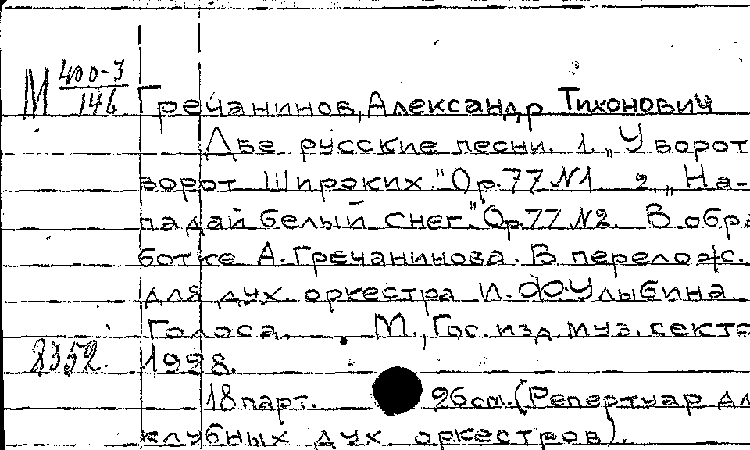 М 400-3/146 Гречанинов, Александр Тихонович
Две русские песни. 1. „У ворот
ворот широких." Ор.77 №1 2. „На-
падай белый снег." Ор.77 №2. В обра
ботке А. Гречанинова. В перелож.
для дух. оркестра
Голоса. М., Гос. изд. муз. секто
8352. 1928.
18 парт. 26 см. (Репертуар дл
клубных дух. оркестров).